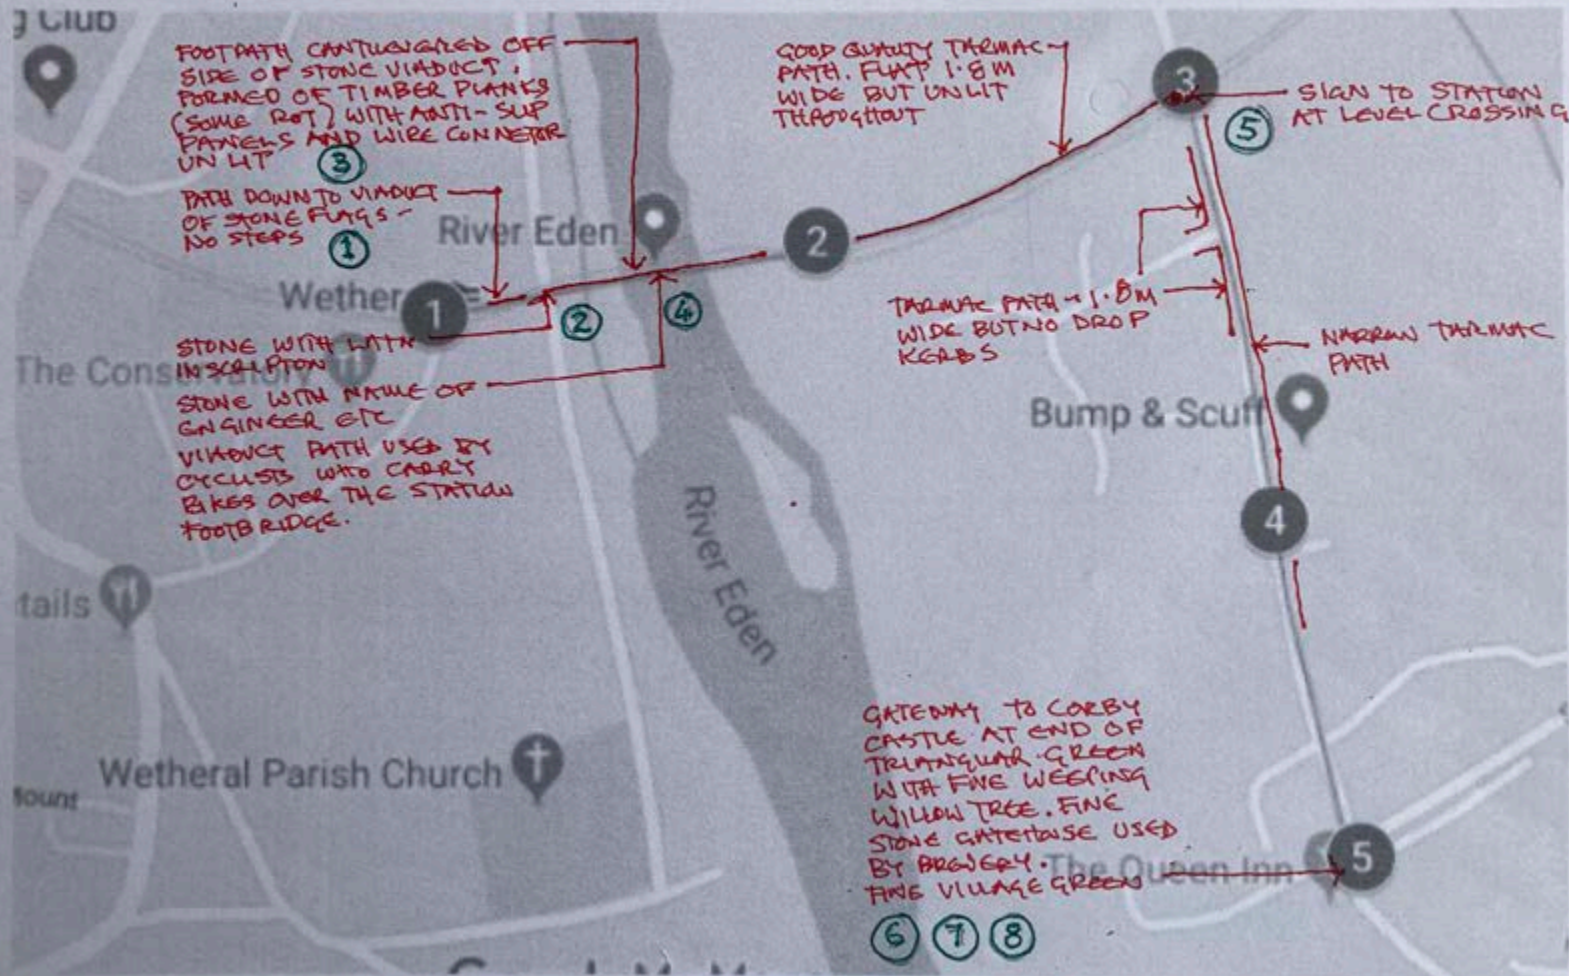 g Club
FOOTPATH CANTILEVERED OFF
SIDE OF STONE VIADUCT.
FORMED OF TIMBER PLANKS
(SOME ROT) WITH ANTI-SLIP
PANELS AND WIRE CONNETOR
UNLIT
3
PATH DOWN TO VIADUCT
OF STONE FLAGS -
NO STEPS
1
GOOD QUALITY TARMAC
PATH. FLAT 1.8M
WIDE BUT UNLIT
THROUGHOUT
3
SIGN TO STATION
AT LEVEL CROSSING
5
River Eden
2
Wether
1
2
4
STONE WITH LATIN
INSCRIPTON
The Conservatory
STONE WITH NAME OF
ENGINEER ETC
VIADUCT PATH USED BY
CYCLISTS WHO CARRY
BIKES OVER THE STATION
FOOTBRIDGE.
TARMAC PATH - 1.8M
WIDE BUT NO DROP
KERBS
NARROW TARMAC
PATH
Bump & Scuff
4
River Eden
tails
Wetheral Parish Church
Mount
GATEWAY TO CORBY
CASTLE AT END OF
TRIANGULAR GREEN
WITH FINE WEEPING
WILLOW TREE. FINE
STONE GATEHOUSE USED
BY BREWERY.
FINE VILLAGE GREEN
The Queen Inn
5
6 7 8